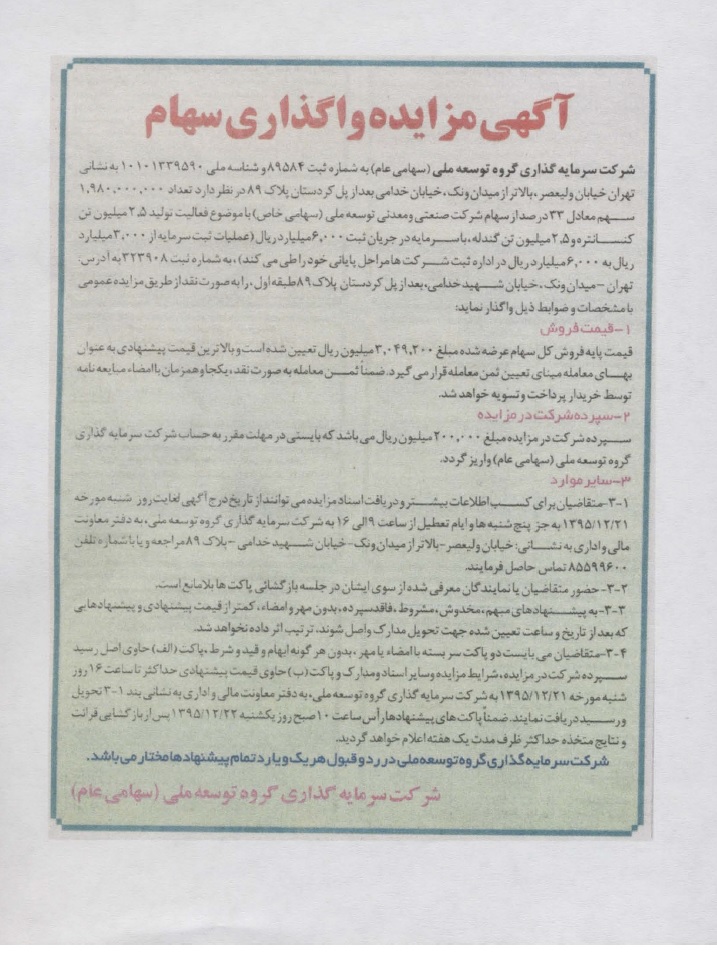 آگهی مزایده واگذاری سهام
شرکت سرمایه گذاری گروه توسعه ملی (سهامی عام) به شماره ثبت ۸۹۵۸۴ و شناسه ملی ۱۰۱۰۱۳۳۹۵۹۰ به نشانی
تهران خیابان ولیعصر، بالاتر از میدان ونک، خیابان خدامی بعد از پل کردستان پلاک ۸۹ در نظر دارد تعداد ۱,۹۸۰,۰۰۰,۰۰۰
سهم معادل ۳۳ درصد از سهام شرکت صنعتی و معدنی توسعه ملی (سهامی خاص) با موضوع فعالیت تولید ۲,۵ میلیون تن
کنسانتره و ۲,۵ میلیون تن گندله، با سرمایه در جریان ثبت ۶,۰۰۰ میلیارد ریال (عملیات ثبت سرمایه از ۳,۰۰۰ میلیارد
ریال به ۶,۰۰۰ میلیارد ریال در اداره ثبت شرکت ها مراحل پایانی خود را طی می کند)، به شماره ثبت ۳۲۳۹۰۸ به آدرس:
تهران – میدان ونک، خیابان شهید خدامی، بعد از پل کردستان پلاک ۸۹ طبقه اول، را به صورت نقد از طریق مزایده عمومی
با مشخصات و ضوابط ذیل واگذار نماید:
۱- قیمت فروش
قیمت پایه فروش کل سهام عرضه شده مبلغ ۳,۰۴۹,۲۰۰ میلیون ریال تعیین شده است و بالاترین قیمت پیشنهادی به عنوان
بهای معامله مبنای تعیین ثمن معامله قرار می گیرد. ضمناً ثمن معامله به صورت نقد، یکجا و همزمان با امضاء مبایعه نامه
توسط خریدار پرداخت و تسویه خواهد شد.
۲- سپرده شرکت در مزایده
سپرده شرکت در مزایده مبلغ ۲۰۰,۰۰۰ میلیون ریال می باشد که بایستی در مهلت مقرر به حساب شرکت سرمایه گذاری
گروه توسعه ملی (سهامی عام) واریز گردد.
۳- سایر موارد
۳-۱- متقاضیان برای کسب اطلاعات بیشتر و دریافت اسناد مزایده می توانند از تاریخ درج آگهی لغایت روز شنبه مورخه
۱۳۹۵/۱۲/۲۱ به جز پنج شنبه ها و ایام تعطیل از ساعت ۹ الی ۱۶ به شرکت سرمایه گذاری گروه توسعه ملی، به دفتر معاونت
مالی و اداری به نشانی: خیابان ولیعصر- بالاتر از میدان ونک- خیابان شهید خدامی - پلاک ۸۹ مراجعه و یا با شماره تلفن
۸۵۵۹۹۶۰۰ تماس حاصل فرمایند.
۳-۲- حضور متقاضیان یا نمایندگان معرفی شده از سوی ایشان در جلسه بازگشائی پاکت ها بلامانع است.
۳-۳- به پیشنهادهای مبهم، مخدوش، مشروط، فاقد سپرده، بدون مهر و امضاء، کمتر از قیمت پیشنهادی و پیشنهادهایی
که بعد از تاریخ و ساعت تعیین شده جهت تحویل مدارک واصل شوند، ترتیب اثر داده نخواهد شد.
۳-۴- متقاضیان می بایست دو پاکت سر بسته با امضاء یا مهر، بدون هر گونه ابهام و قید و شرط، پاکت (الف) حاوی اصل رسید
سپرده شرکت در مزایده، شرایط مزایده و سایر اسناد و مدارک و پاکت (ب) حاوی قیمت پیشنهادی حداکثر تا ساعت ۱۶ روز
شنبه مورخه ۱۳۹۵/۱۲/۲۱ به شرکت سرمایه گذاری گروه توسعه ملی، به دفتر معاونت مالی و اداری به نشانی بند ۳-۱ تحویل
و رسید دریافت نمایند. ضمناً پاکت های پیشنهادها رأس ساعت ۱۰ صبح روز یکشنبه ۱۳۹۵/۱۲/۲۲ پس از بازگشایی قرائت
و نتایج متخذه حداکثر ظرف مدت یک هفته اعلام خواهد گردید.
شرکت سرمایه گذاری گروه توسعه ملی در رد و قبول هر یک و یا رد تمام پیشنهادها مختار می باشد.
شرکت سرمایه گذاری گروه توسعه ملی (سهامی عام)